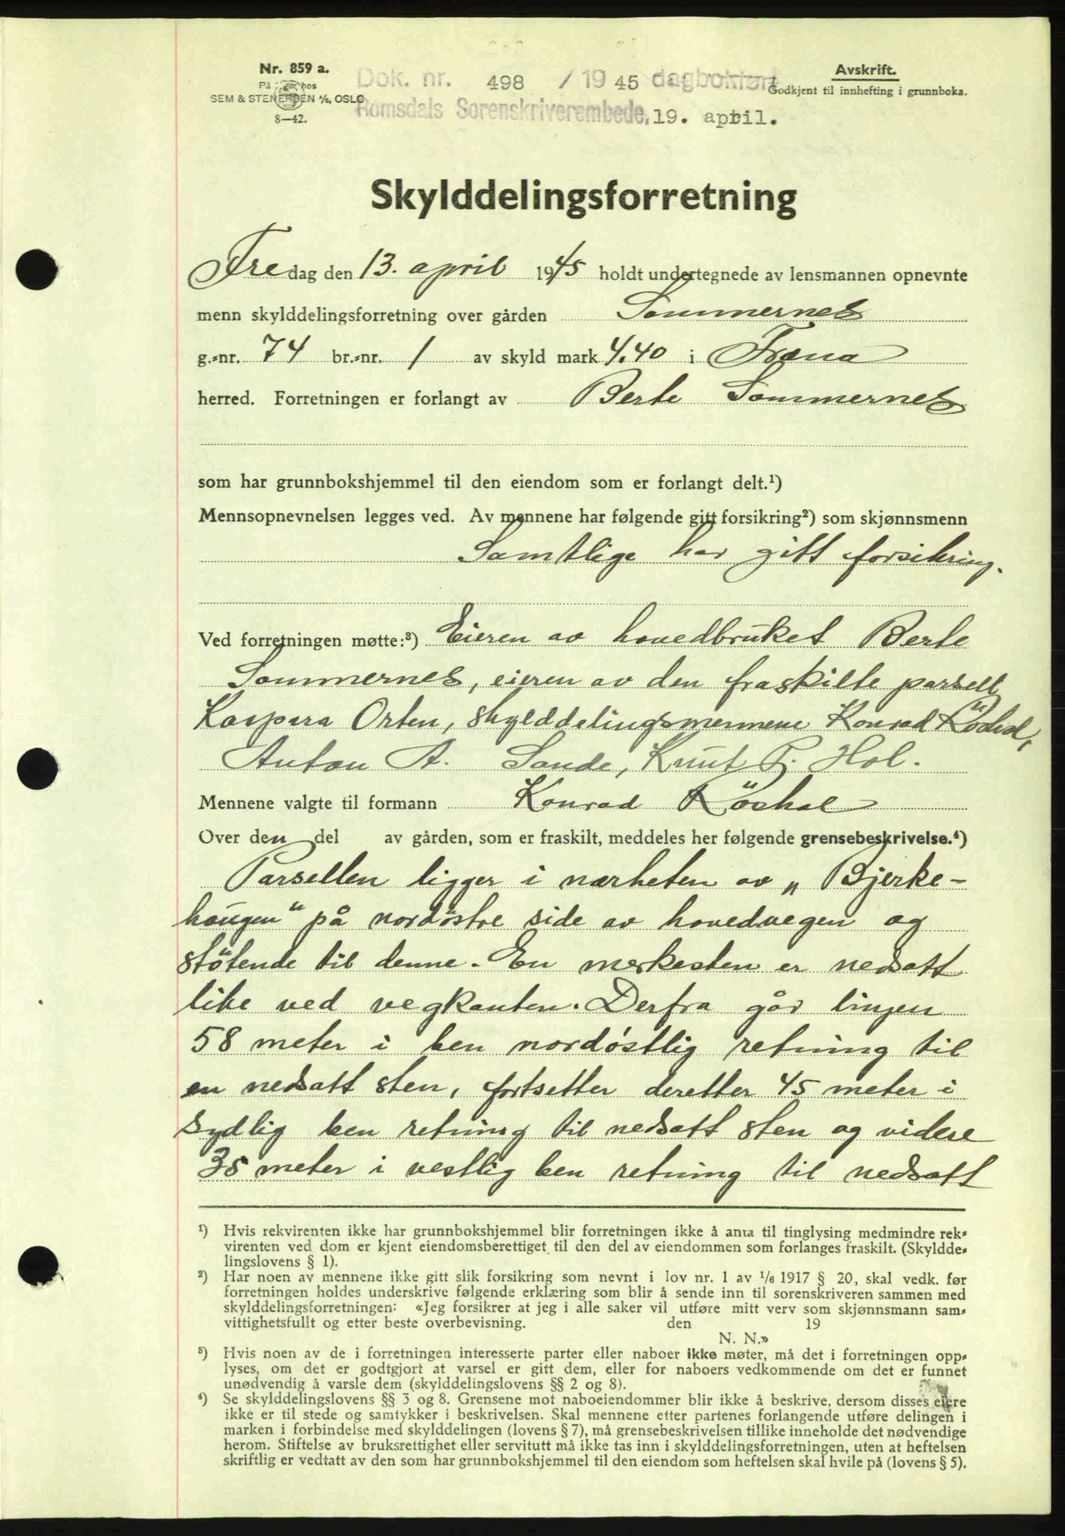 Nr. 859 a.
På lager hos
SEM & STENERSEN A/S, OSLO
8—42.
Dok. nr. 498 / 19 45 dagbokført
Romsdals Sorenskriverembede, 19. april.
Avskrift.
Godkjent til innhefting i grunnboka.
Skylddelingsforretning
Fredag den 13. april 1945 holdt undertegnede av lensmannen opnevnte
menn skylddelingsforretning over gården Sommernes
g.-nr. 74 br.-nr. 1 av skyld mark 4.40 i Fræna
herred. Forretningen er forlangt av Berte Sommernes
som har grunnbokshjemmel til den eiendom som er forlangt delt.¹)
Mennsopnevnelsen legges ved. Av mennene har følgende gitt forsikring²) som skjønnsmenn
Samtlige har gitt forsikring.
Ved forretningen møtte:³) Eieren av hovedbruket Berte
Sommernes, eieren av den fraskilte parsell
Kaspara Orten, skylddelingsmennene Konrad Röshol,
Anton A. Sande, Knut P. Hol.
Mennene valgte til formann Konrad Röshol
Over den del av gården, som er fraskilt, meddeles her følgende grensebeskrivelse.⁴)
Parsellen ligger i nærheten av „Bjerke-
haugen" på nordøstre side av hovedvegen og
støtende til denne. En merkesten er nedsatt
like ved vegkanten. Derfra går linjen
58 meter i ben nordøstlig retning til
en nedsatt sten, fortsetter deretter 45 meter i
sydlig ben retning til nedsatt sten og videre
35 meter i vestlig ben retning til nedsatt
¹) Hvis rekvirenten ikke har grunnbokshjemmel blir forretningen ikke å anta til tinglysing medmindre rek-
virenten ved dom er kjent eiendomsberettiget til den del av eiendommen som forlanges fraskilt. (Skyldde-
lingslovens § 1).
²) Har noen av mennene ikke gitt slik forsikring som nevnt i lov nr. 1 av ¹/₈ 1917 § 20, skal vedk. før
forretningen holdes underskrive følgende erklæring som blir å sende inn til sorenskriveren sammen med
skylddelingsforretningen: «Jeg forsikrer at jeg i alle saker vil utføre mitt verv som skjønnsmann sam-
vittighetsfullt og etter beste overbevisning. den 19
N. N.»
³) Hvis noen av de i forretningen interesserte parter eller naboer ikke møter, må det i forretningen opp-
lyses, om det er godtgjort at varsel er gitt dem, eller for naboers vedkommende om det er funnet
unødvendig å varsle dem (skylddelingslovens §§ 2 og 8).
⁴) Se skylddelingslovens §§ 3 og 8. Grensene mot naboeiendommer blir ikke å beskrive, dersom disses eiere
ikke er til stede og samtykker i beskrivelsen. Skal mennene etter partenes forlangende utføre delingen i
marken i forbindelse med skylddelingen (lovens § 7), må grensebeskrivelsen tillike inneholde det nødvendige
herom. Stiftelse av bruksrettighet eller servitutt må ikke tas inn i skylddelingsforretningen, uten at heftelsen
skriftlig er vedtatt av den som har grunnbokshjemmel til den eiendom som heftelsen skal hvile på (lovens § 5).